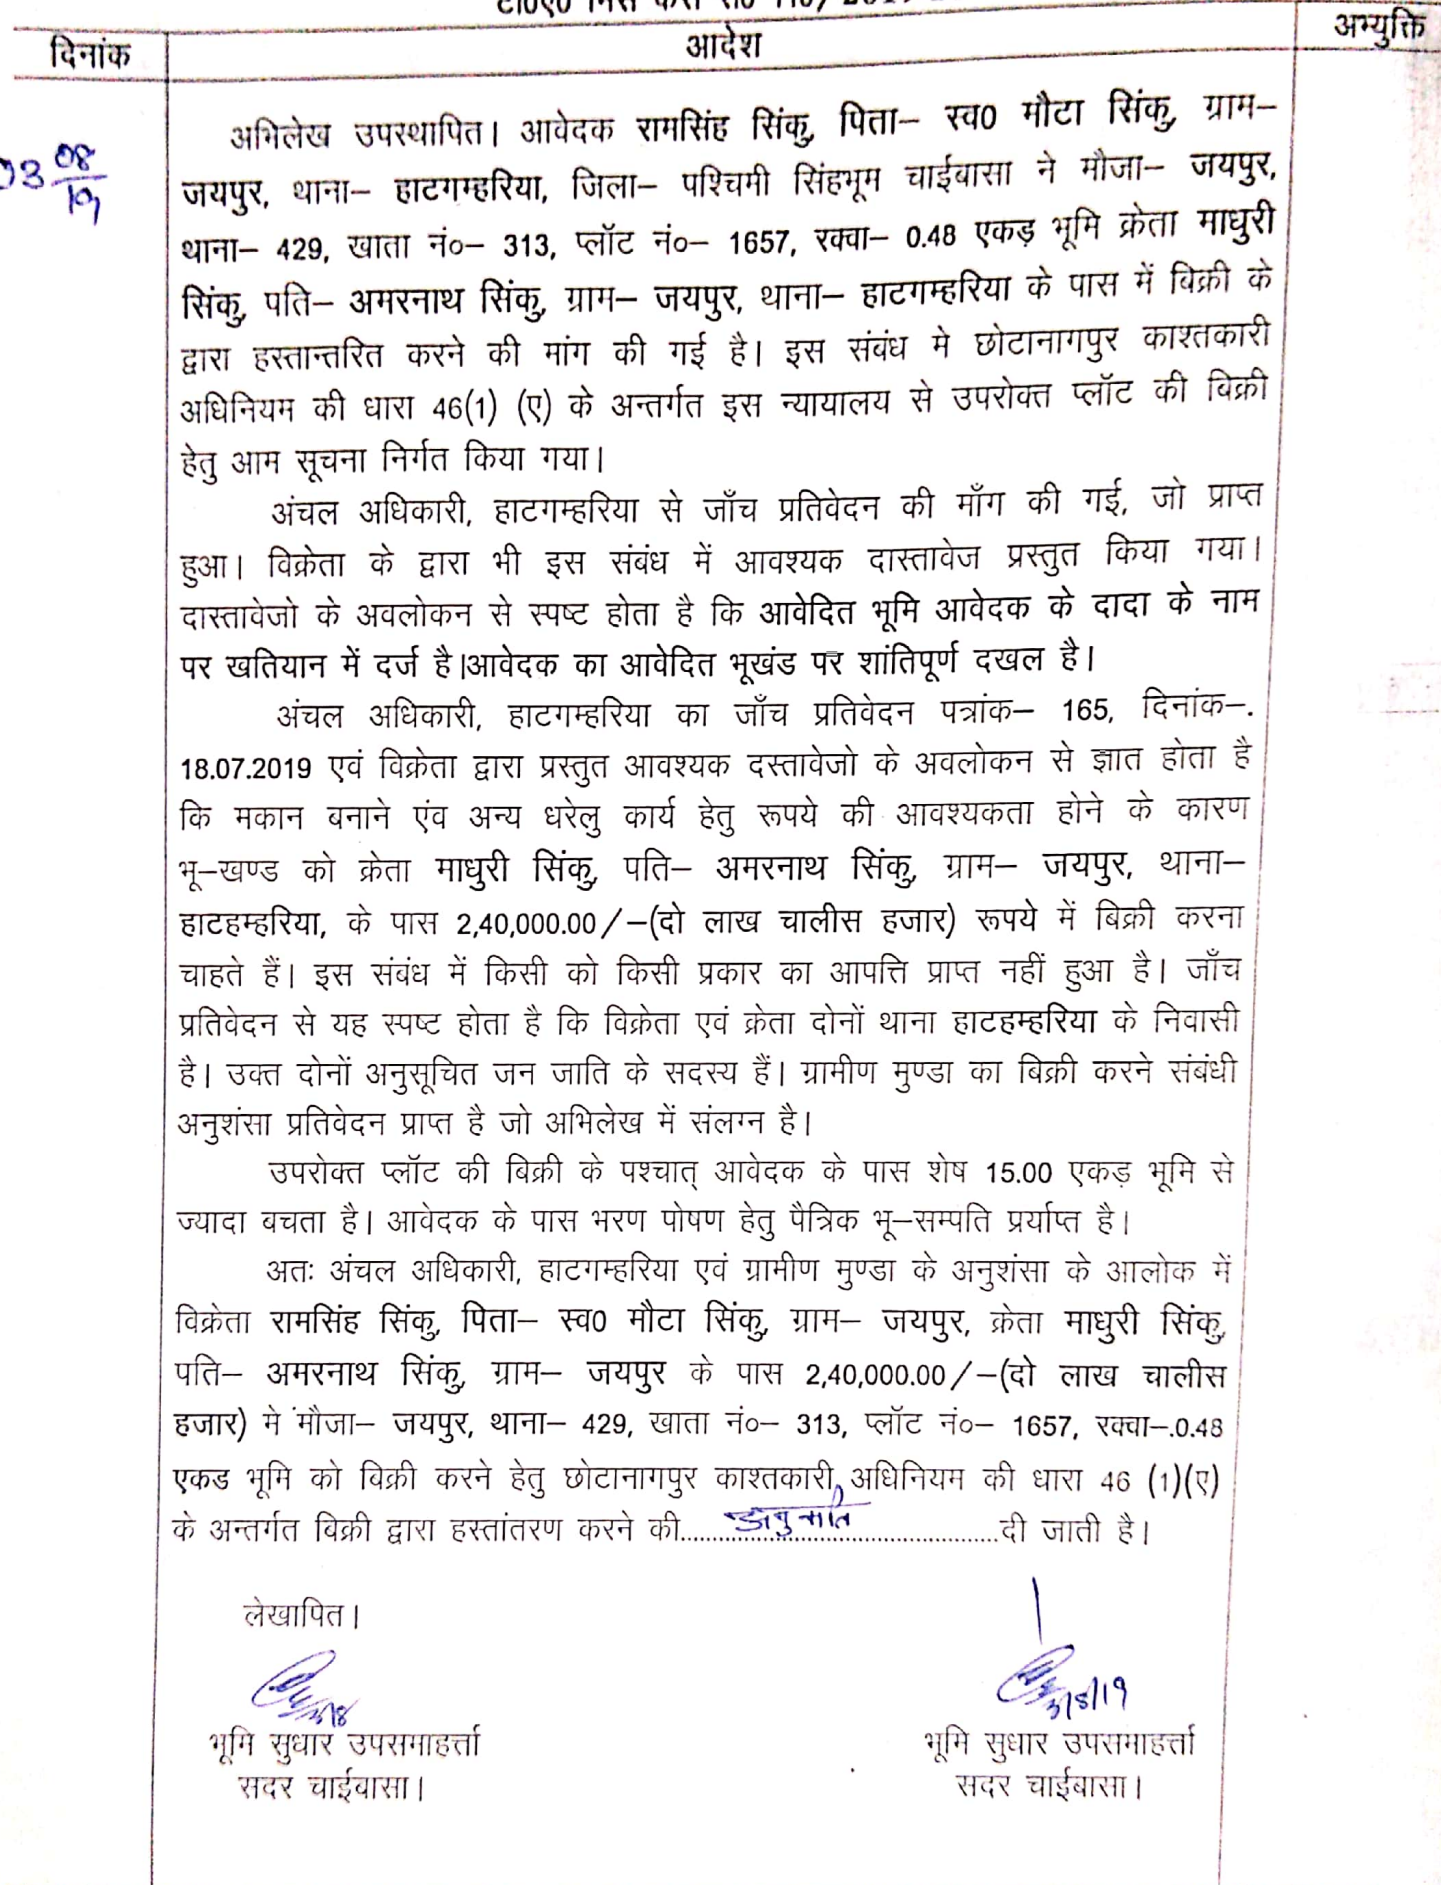 दिनांक
आदेश
अभ्युक्ति
03 08/19
अभिलेख उपस्थापित। आवेदक रामसिंह सिंकु, पिता– स्व0 मौटा सिंकु, ग्राम–
जयपुर, थाना– हाटगम्हरिया, जिला– पश्चिमी सिंहभूम चाईबासा ने मौजा– जयपुर,
थाना– 429, खाता नं०– 313, प्लॉट नं०– 1657, रक्वा– 0.48 एकड़ भूमि क्रेता माधुरी
सिंकु, पति– अमरनाथ सिंकु, ग्राम– जयपुर, थाना– हाटगम्हरिया के पास में बिक्री के
द्वारा हस्तान्तरित करने की मांग की गई है। इस संबंध मे छोटानागपुर काश्तकारी
अधिनियम की धारा 46(1) (ए) के अन्तर्गत इस न्यायालय से उपरोक्त प्लॉट की बिक्री
हेतु आम सूचना निर्गत किया गया।
अंचल अधिकारी, हाटगम्हरिया से जाँच प्रतिवेदन की माँग की गई, जो प्राप्त
हुआ। विक्रेता के द्वारा भी इस संबंध में आवश्यक दास्तावेज प्रस्तुत किया गया।
दास्तावेजो के अवलोकन से स्पष्ट होता है कि आवेदित भूमि आवेदक के दादा के नाम
पर खतियान में दर्ज है।आवेदक का आवेदित भूखंड पर शांतिपूर्ण दखल है।
अंचल अधिकारी, हाटगम्हरिया का जाँच प्रतिवेदन पत्रांक– 165, दिनांक–.
18.07.2019 एवं विक्रेता द्वारा प्रस्तुत आवश्यक दस्तावेजो के अवलोकन से ज्ञात होता है
कि मकान बनाने एंव अन्य धरेलु कार्य हेतु रूपये की आवश्यकता होने के कारण
भू–खण्ड को क्रेता माधुरी सिंकु, पति– अमरनाथ सिंकु, ग्राम– जयपुर, थाना–
हाटहम्हरिया, के पास 2,40,000.00/–(दो लाख चालीस हजार) रूपये में बिक्री करना
चाहते हैं। इस संबंध में किसी को किसी प्रकार का आपत्ति प्राप्त नहीं हुआ है। जाँच
प्रतिवेदन से यह स्पष्ट होता है कि विक्रेता एवं क्रेता दोनों थाना हाटहम्हरिया के निवासी
है। उक्त दोनों अनुसूचित जन जाति के सदस्य हैं। ग्रामीण मुण्डा का बिक्री करने संबंधी
अनुशंसा प्रतिवेदन प्राप्त है जो अभिलेख में संलग्न है।
उपरोक्त प्लॉट की बिक्री के पश्चात् आवेदक के पास शेष 15.00 एकड़ भूमि से
ज्यादा बचता है। आवेदक के पास भरण पोषण हेतु पैत्रिक भू–सम्पति प्रर्याप्त है।
अतः अंचल अधिकारी, हाटगम्हरिया एवं ग्रामीण मुण्डा के अनुशंसा के आलोक में
विक्रेता रामसिंह सिंकु, पिता– स्व0 मौटा सिंकु, ग्राम– जयपुर, क्रेता माधुरी सिंकु,
पति– अमरनाथ सिंकु, ग्राम– जयपुर के पास 2,40,000.00/–(दो लाख चालीस
हजार) मे मौजा– जयपुर, थाना– 429, खाता नं०– 313, प्लॉट नं०– 1657, रक्वा–.0.48
एकड भूमि को बिक्री करने हेतु छोटानागपुर काश्तकारी अधिनियम की धारा 46 (1)(ए)
के अन्तर्गत बिक्री द्वारा हस्तांतरण करने की.......अनुमति.......दी जाती है।
लेखापित।
3/8
3/8/19
भूमि सुधार उपसमाहर्त्ता
भूमि सुधार उपसमाहर्त्ता
सदर चाईबासा।
सदर चाईबासा।